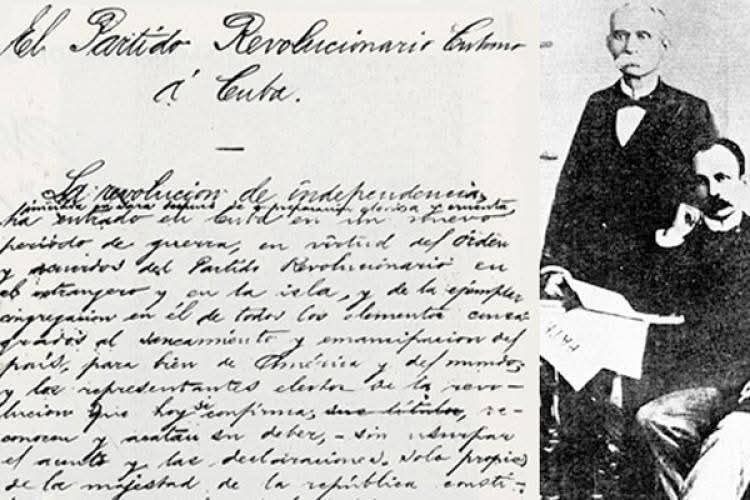 El Partido Revolucionario Cubano
á Cuba.
—
La revolucion de independencia,
iniciada en Yara despues de preparacion gloriosa y cruenta,
ha entrado en Cuba en un nuevo
periodo de guerra, en virtud del órden
y acuerdos del Partido Revolucionario en
el extrangero y en la isla, y de la ejemplar
congregacion en él de todos los elementos consa-
grados al saneamiento y emancipacion del
país, para bien de América y del mundo;
y los representantes electos de la revo-
lucion que hoy se confirma, sus títulos, re-
conocen y acatan su deber, - sin usurpar
el acento y las declaraciones solo propias
de la majestad de la república consti-